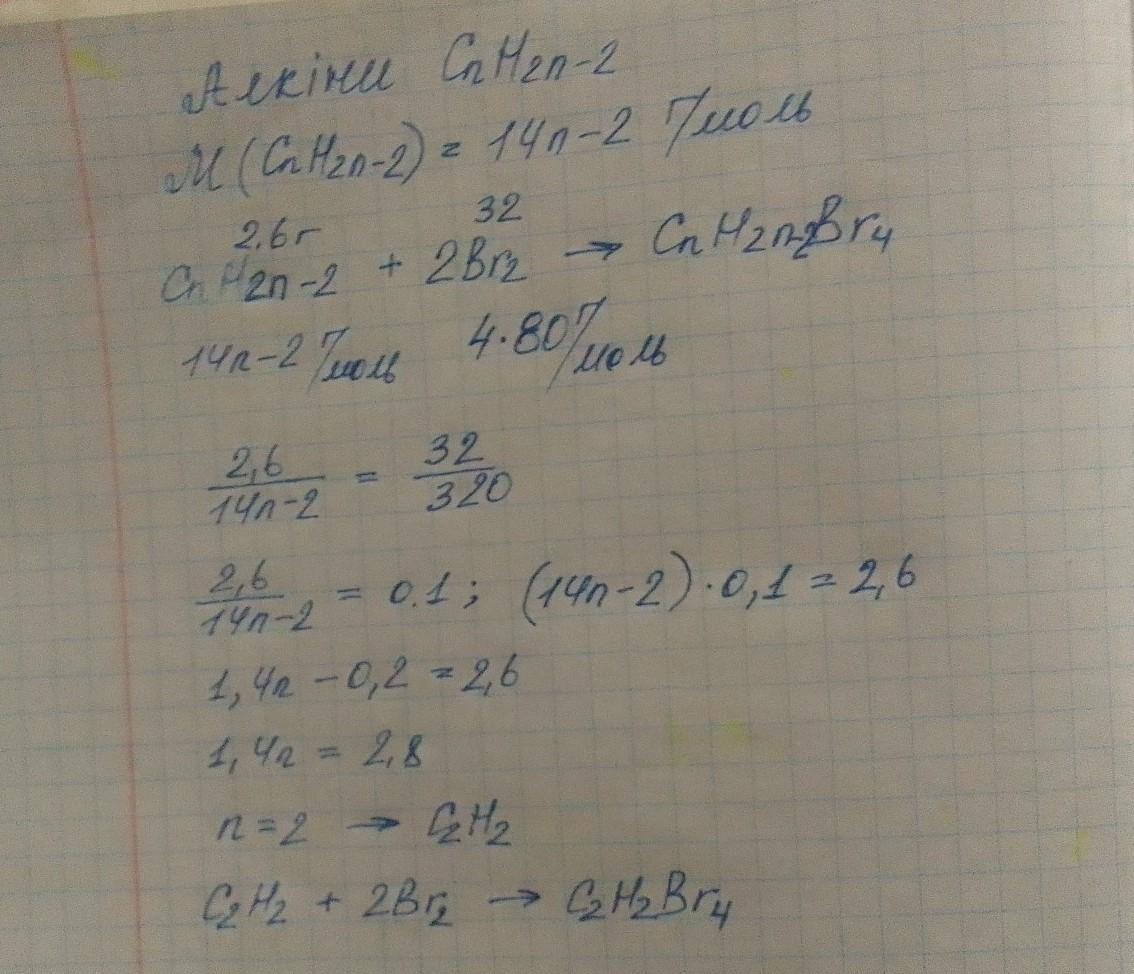 Алкіни CnH2n-2
M (CnH2n-2) = 14n-2 г/моль
2,6г 32
CnH2n-2 + 2Br2 → CnH2n-2Br4
14n-2 г/моль 4·80 г/моль
2,6/14n-2 = 32/320
2,6/14n-2 = 0.1; (14n-2)·0,1=2,6
1,4n -0,2 =2,6
1,4n = 2,8
n=2 → C2H2
C2H2 + 2Br2 → C2H2Br4